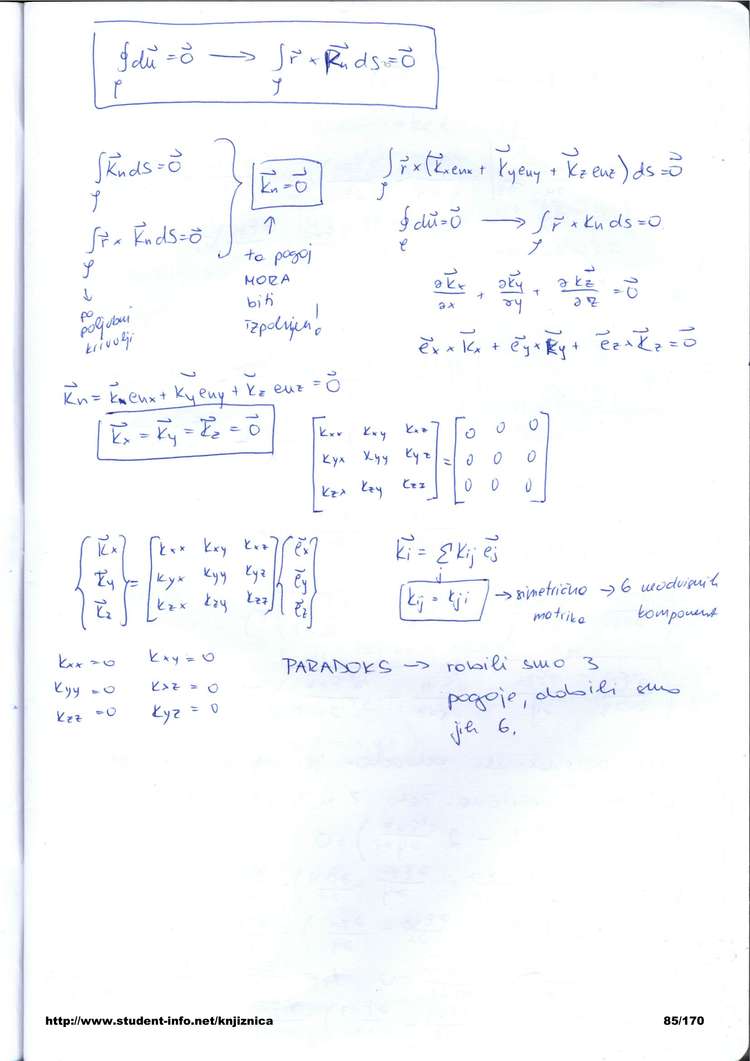 ∮du⃗ = 0⃗ ⟶ ∫ r⃗ × K⃗n dS = 0⃗
φ φ
∫K⃗n dS = 0⃗
φ
∫r⃗ × K⃗n dS = 0⃗
φ
↓
po
poljubni
krivulji
K⃗n = 0⃗
↑
ta pogoj
MORA
biti
izpolnjen!
∫ r⃗ × (K⃗x enx + K⃗y eny + K⃗z enz) dS = 0⃗
φ
∮ du⃗ = 0⃗ ⟶ ∫ r⃗ × Kn dS = 0
φ φ
∂K⃗x/∂x + ∂K⃗y/∂y + ∂K⃗z/∂z = 0⃗
e⃗x × K⃗x + e⃗y × K⃗y + e⃗z × K⃗z = 0⃗
K⃗n = K⃗x enx + K⃗y eny + K⃗z enz = 0⃗
K⃗x = K⃗y = K⃗z = 0⃗
[Kxx Kxy Kxz] [0 0 0]
[Kyx Kyy Kyz] = [0 0 0]
[Kzx Kzy Kzz] [0 0 0]
{K⃗x} [Kxx Kxy Kxz] {e⃗x}
{K⃗y} = [Kyx Kyy Kyz] {e⃗y}
{K⃗z} [Kzx Kzy Kzz] {e⃗z}
K⃗i = Σ Kij e⃗j
j
Kij = Kji → simetrična → 6 neodvisnih
matrika komponent
Kxx = 0 Kxy = 0
Kyy = 0 Kxz = 0
Kzz = 0 Kyz = 0
PARADOKS → rabili smo 3
pogoje, dobili smo
jih 6.
http://www.student-info.net/knjiznica 85/170